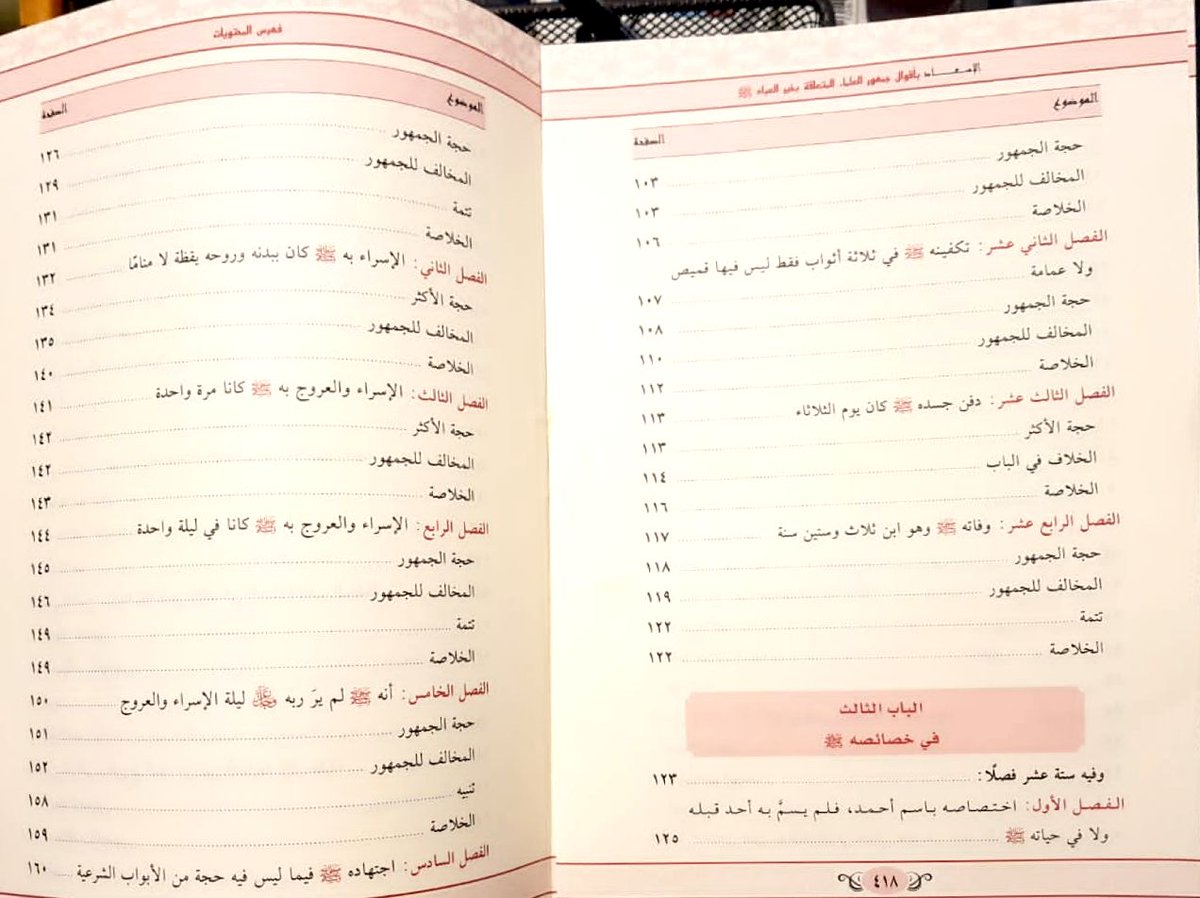 الإسعاد بأقوال جمهور العلماء المتعلقة بخير العباد ﷺ
الموضوع الصفحة
حجة الجمهور ١٠٣
المخالف للجمهور ١٠٣
الخلاصة ١٠٦
الفصل الثاني عشر: تكفينه ﷺ في ثلاثة أثواب فقط ليس فيها قميص
ولا عمامة ١٠٧
حجة الجمهور ١٠٨
المخالف للجمهور ١١٠
الخلاصة ١١٢
الفصل الثالث عشر: دفن جسده ﷺ كان يوم الثلاثاء ١١٣
حجة الأكثر ١١٣
الخلاف في الباب ١١٤
الخلاصة ١١٦
الفصل الرابع عشر: وفاته ﷺ وهو ابن ثلاث وستين سنة ١١٧
حجة الجمهور ١١٨
المخالف للجمهور ١١٩
تتمة ١٢٢
الخلاصة ١٢٢
الباب الثالث
في خصائصه ﷺ
وفيه ستة عشر فصلًا: ١٢٣
الفصل الأول: اختصاصه باسم أحمد، فلم يسمَّ به أحد قبله
ولا في حياته ﷺ ١٢٥
٤١٨
فهرس المحتويات
الموضوع الصفحة
حجة الجمهور ١٢٦
المخالف للجمهور ١٢٩
تتمة ١٣١
الخلاصة ١٣١
الفصل الثاني: الإسراء به ﷺ كان ببدنه وروحه يقظة لا منامًا ١٣٢
حجة الأكثر ١٣٤
المخالف للجمهور ١٣٥
الخلاصة ١٤٠
الفصل الثالث: الإسراء والعروج به ﷺ كانا مرة واحدة ١٤١
حجة الأكثر ١٤٢
المخالف للجمهور ١٤٢
الخلاصة ١٤٣
الفصل الرابع: الإسراء والعروج به ﷺ كانا في ليلة واحدة ١٤٤
حجة الجمهور ١٤٥
المخالف للجمهور ١٤٦
تتمة ١٤٩
الخلاصة ١٤٩
الفصل الخامس: أنه ﷺ لم يرَ ربه ﷻ ليلة الإسراء والعروج ١٥٠
حجة الجمهور ١٥١
المخالف للجمهور ١٥٢
تنبيه ١٥٨
الخلاصة ١٥٩
الفصل السادس: اجتهاده ﷺ فيما ليس فيه حجة من الأبواب الشرعية ١٦٠